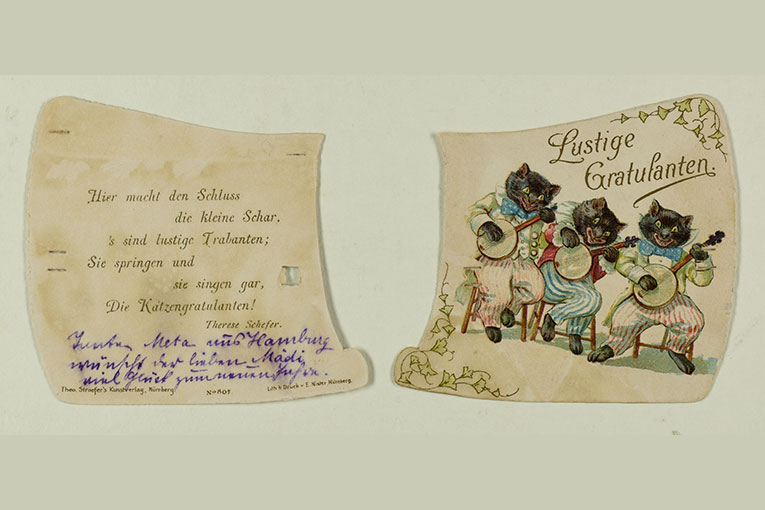 Hier macht den Schluss
die kleine Schar,
's sind lustige Trabanten;
Sie springen und
sie singen gar,
Die Katzengratulanten!
Therese Schefer.
Tante Meta aus Hamburg
wünscht der lieben Mädi
viel Glück zum neuen Jahre.
Theo. Stroefer's Kunstverlag, Nürnberg.
No 807.
Lith & Druck v. E. Nister Nürnberg.
Lustige
Gratulanten